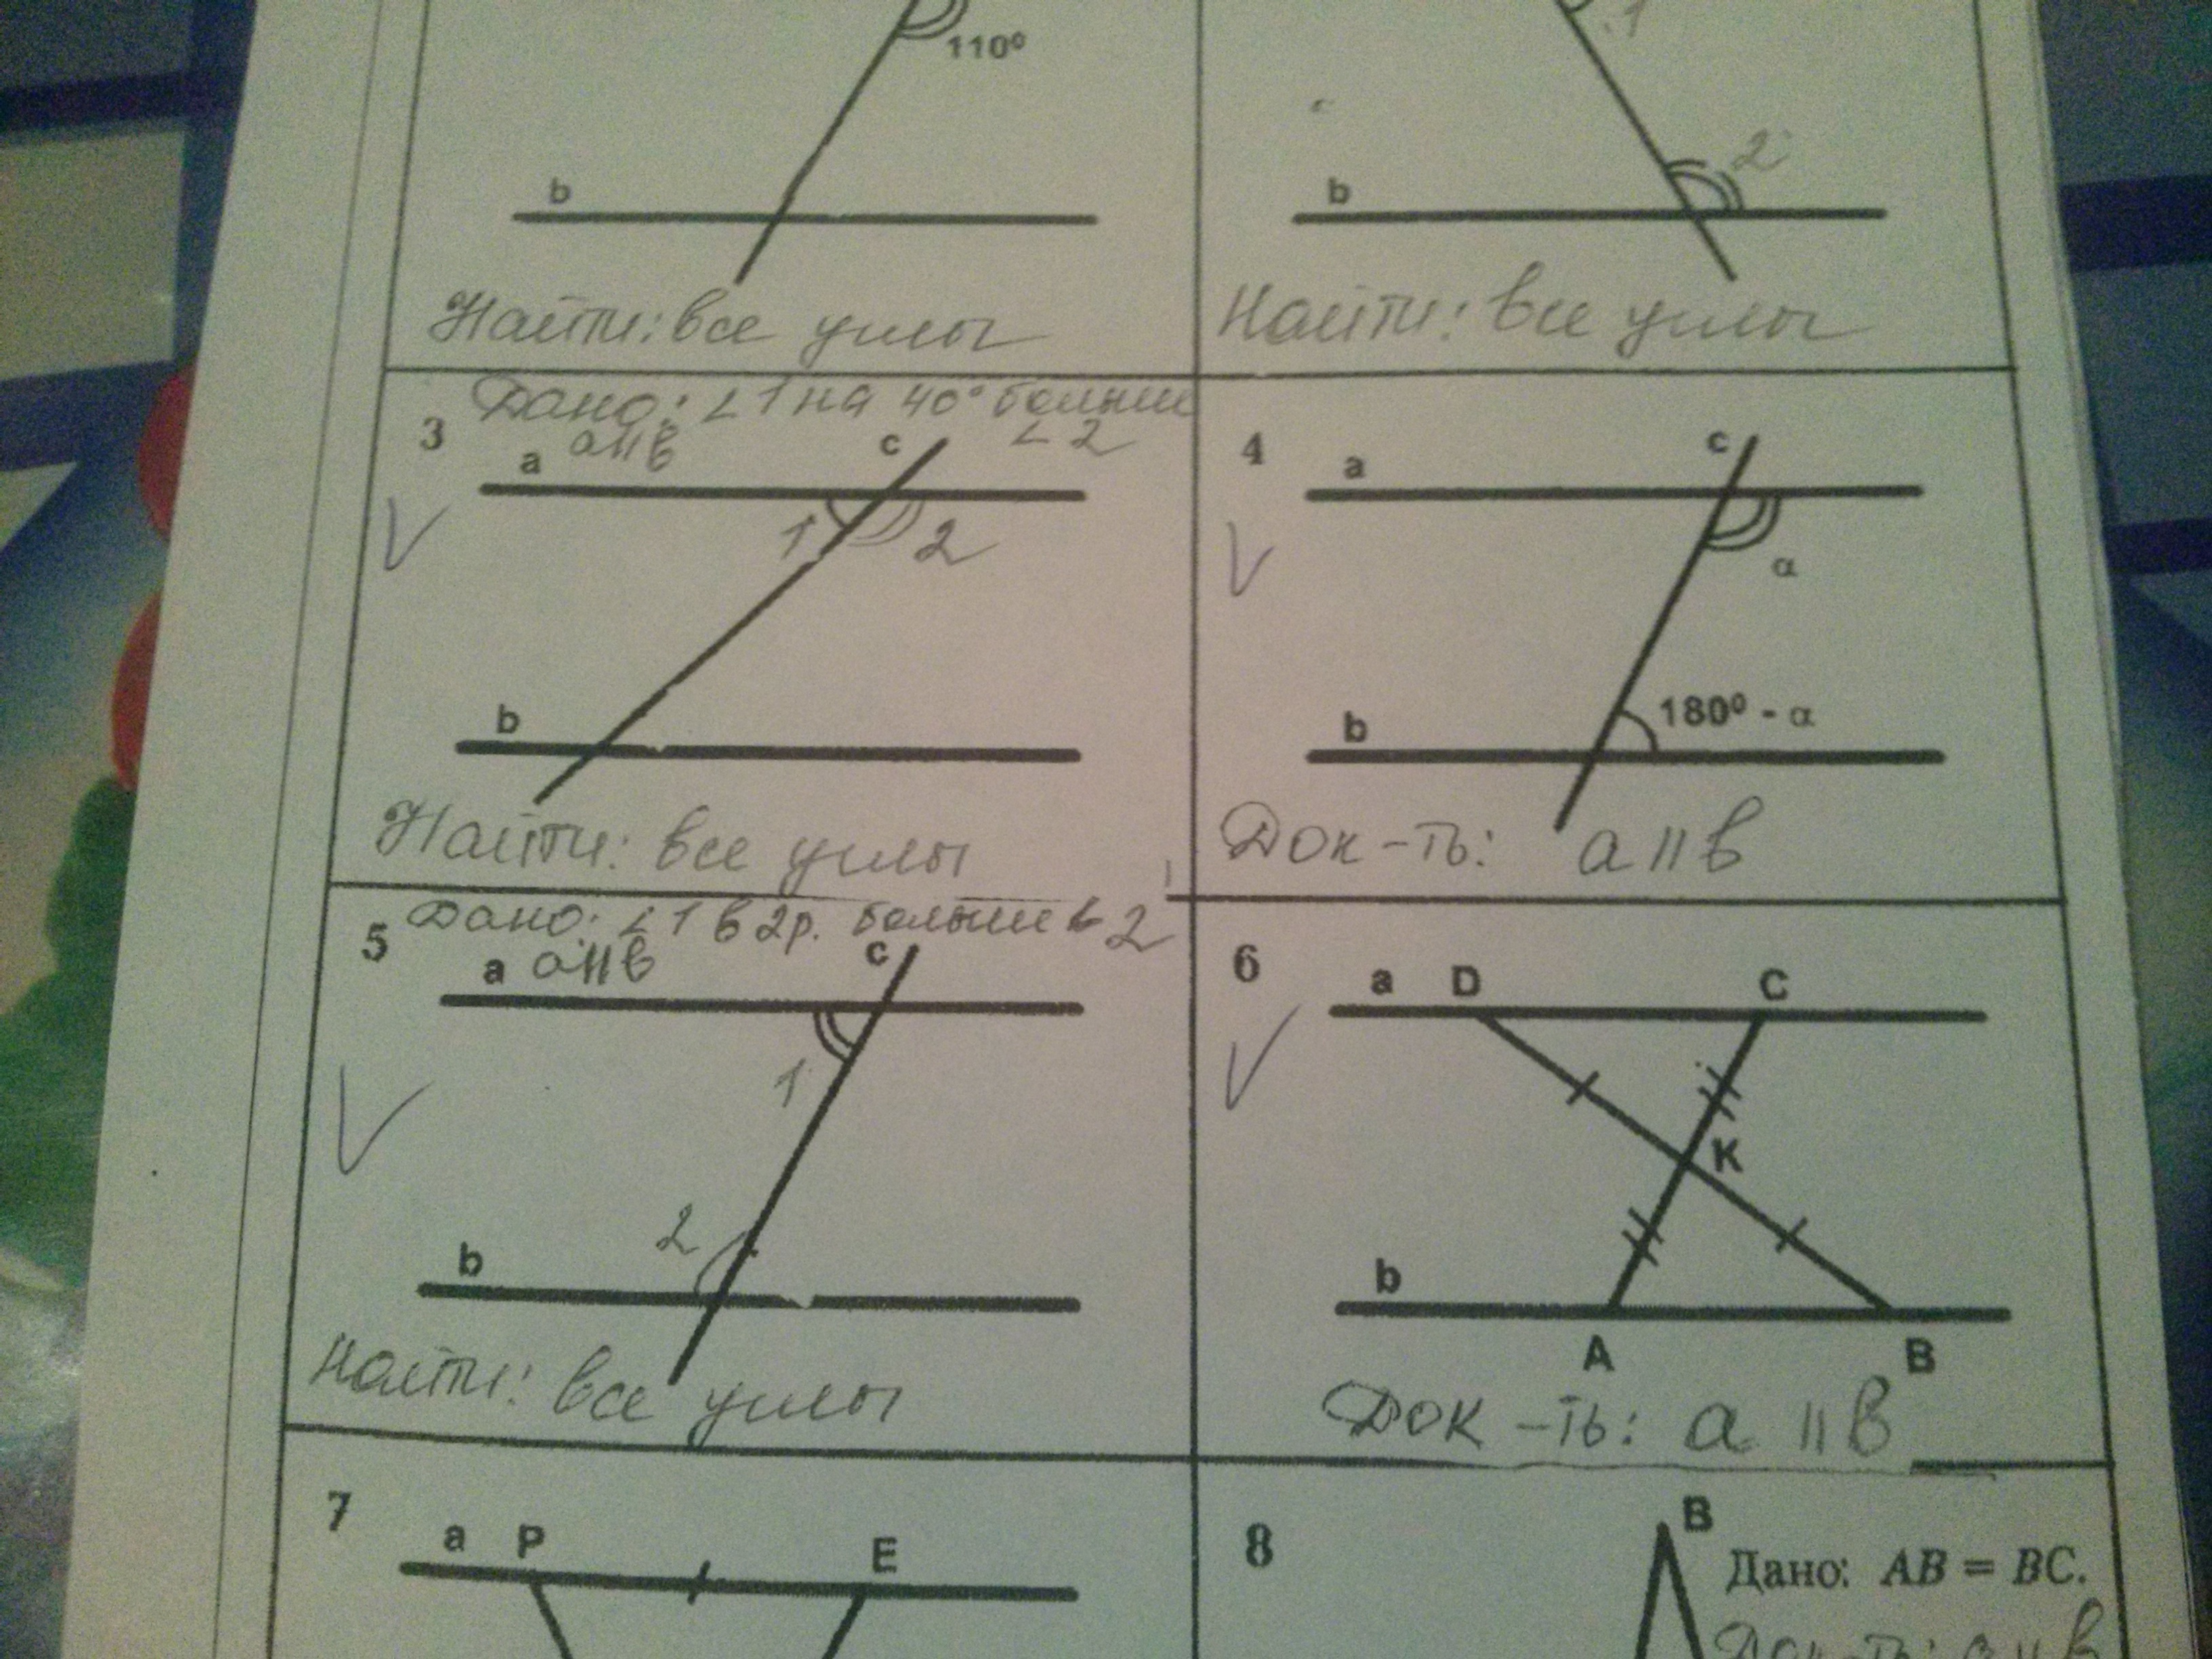 110°
1
2
b
b
Найти: все углы
Найти: все углы
3
Дано: ∠1 на 40° больше
∠2
a
a||в
c
1
2
b
Найти: все углы
4
a
c
α
180° - α
b
Док-ть: a||в
5
Дано: ∠1 в 2р. больше ∠2
a
a||в
c
1
2
b
Найти: все углы
6
a D C
K
b
A B
Док-ть: a || в
7
a P E
8
B
Дано: AB = BC.
Док-ть: a || в